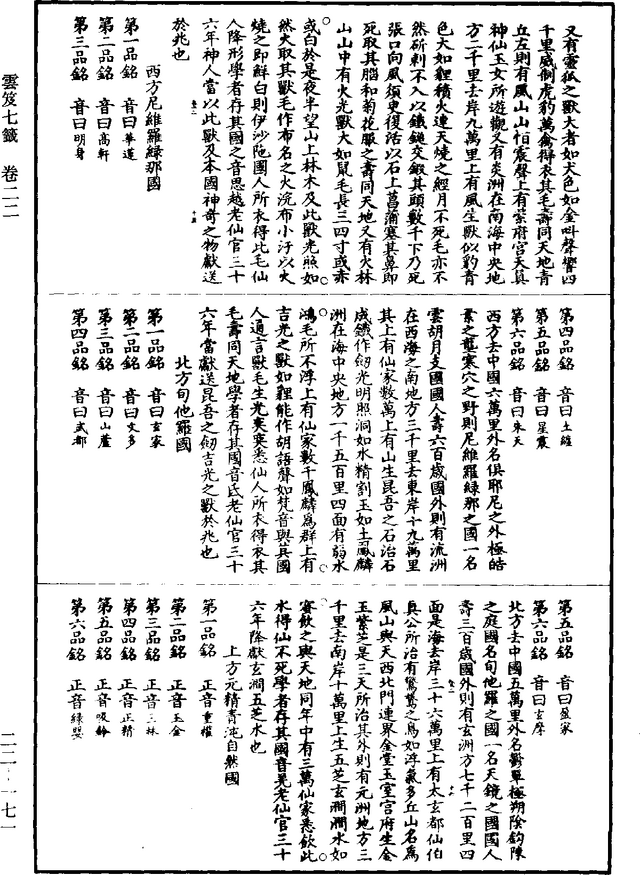 雲笈七籤 卷二二
又有靈狐之獸大者如犬色如金叫聲響四
千里威制虎豹萬禽得衣其毛壽同天地青
丘左則有風山山怕震聲上有紫府宮天真
神仙玉女所遊觀又有炎洲在南海中央地
方二千里去岸九萬里上有風生獸似豹青
色大如貍積火連天燒之經月不死毛亦不
然斫刺不入以鐵鎚交鍛其頭數千下乃死
張口向風須臾復活以石上菖蒲塞其鼻即
死取其腦和菊花服之壽同天地又有火林
山山中有火光獸大如鼠毛長三四寸或赤
或白於是夜半望山上林木及此獸光照如
然火取其獸毛作布名之火浣布小汙以火
燒之即鮮白則伊沙陁國人所衣得比毛仙
人降形學者存其國之音思越老仙官三十
六年神人當以此獸及本國神奇之物獻送
於兆也
西方尼維羅綠那國
第一品銘 音曰華蓮
第二品銘 音曰高軒
第三品銘 音曰明身
第四品銘 音曰土維
第五品銘 音曰星震
第六品銘 音曰朱天
西方去中國六萬里外名俱耶尼之外極皓
素之壟寒穴之野則尼維羅綠那之國一名
雲胡月支國國人壽六百歲國外則有流洲
在西海之南地方三千里去東岸十九萬里
其上有仙家數萬上有山生昆吾之石治石
成鐵作劒光明照洞如水精割玉如土鳳麟
洲在海中央地方一千五百里四面有弱水
鴻毛所不浮上有仙家數千鳳麟爲群上有
吉光之獸如貍能作胡語聲如梵音與其國
人通言獸毛生光奕奕悉仙人所衣得衣其
毛壽同天地學者存其國音氐老仙官三十
六年當獻送昆吾之劒吉光之獸於兆也
北方旬他羅國
第一品銘 音曰玄家
第二品銘 音曰文多
第三品銘 音曰山蘆
第四品銘 音曰武都
第五品銘 音曰盈家
第六品銘 音曰玄摩
北方去中國五萬里外名鬱單極朔陰鈎陳
之庭國名旬他羅之國一名天鏡之國國人
壽三百歲國外則有玄洲方七千二百里四
面是海去岸三十六萬里上有太玄都仙伯
真公所治有鷩鷩之鳥如浮氣多丘山名爲
風山與天西北門連界金堂玉室宮府生金
玉紫芝是三天所治其外則有元洲地方三
千里去南岸十萬里上生五芝玄澗澗水如
蜜飲之與天地同年中有三萬仙家悉飲此
水得仙不死學者存其國音晃老仙官三十
六年降獻玄澗五芝水也
上方元精青沌自然國
第一品銘 正音重權
第二品銘 正音玉金
第三品銘 正音三林
第四品銘 正音正精
第五品銘 正音吸鈴
第六品銘 正音綠嬰
二二–一七一